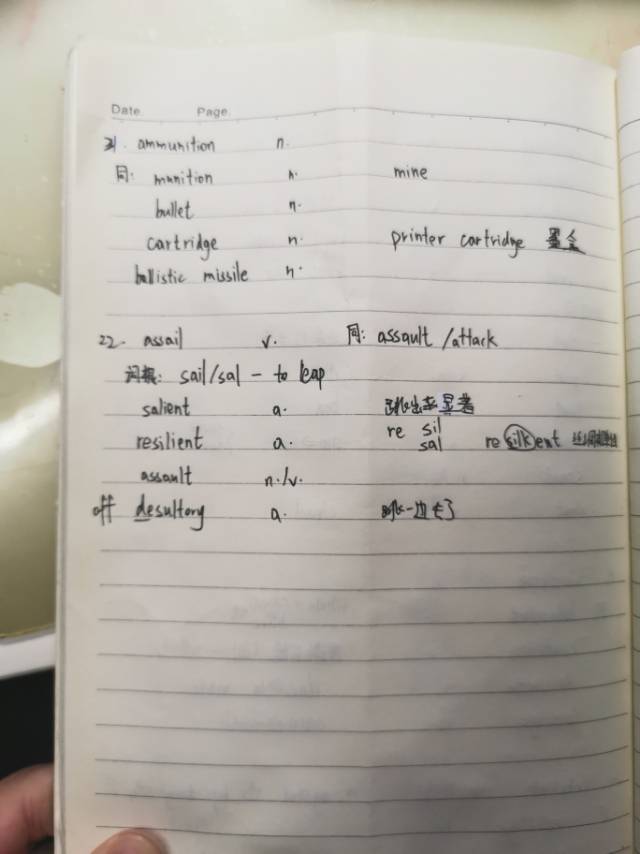 Date. Page.
21. ammunition n.
同: munition n. mine
bullet n.
cartridge n. printer cartridge 墨盒
ballistic missile n.
22. assail v. 同: assault /attack
词根: sail/sal - to leap
salient a. 跳出来显著
resilient a. re sil sal re silkent
assault n./v.
off desultory a. 跳一边去了